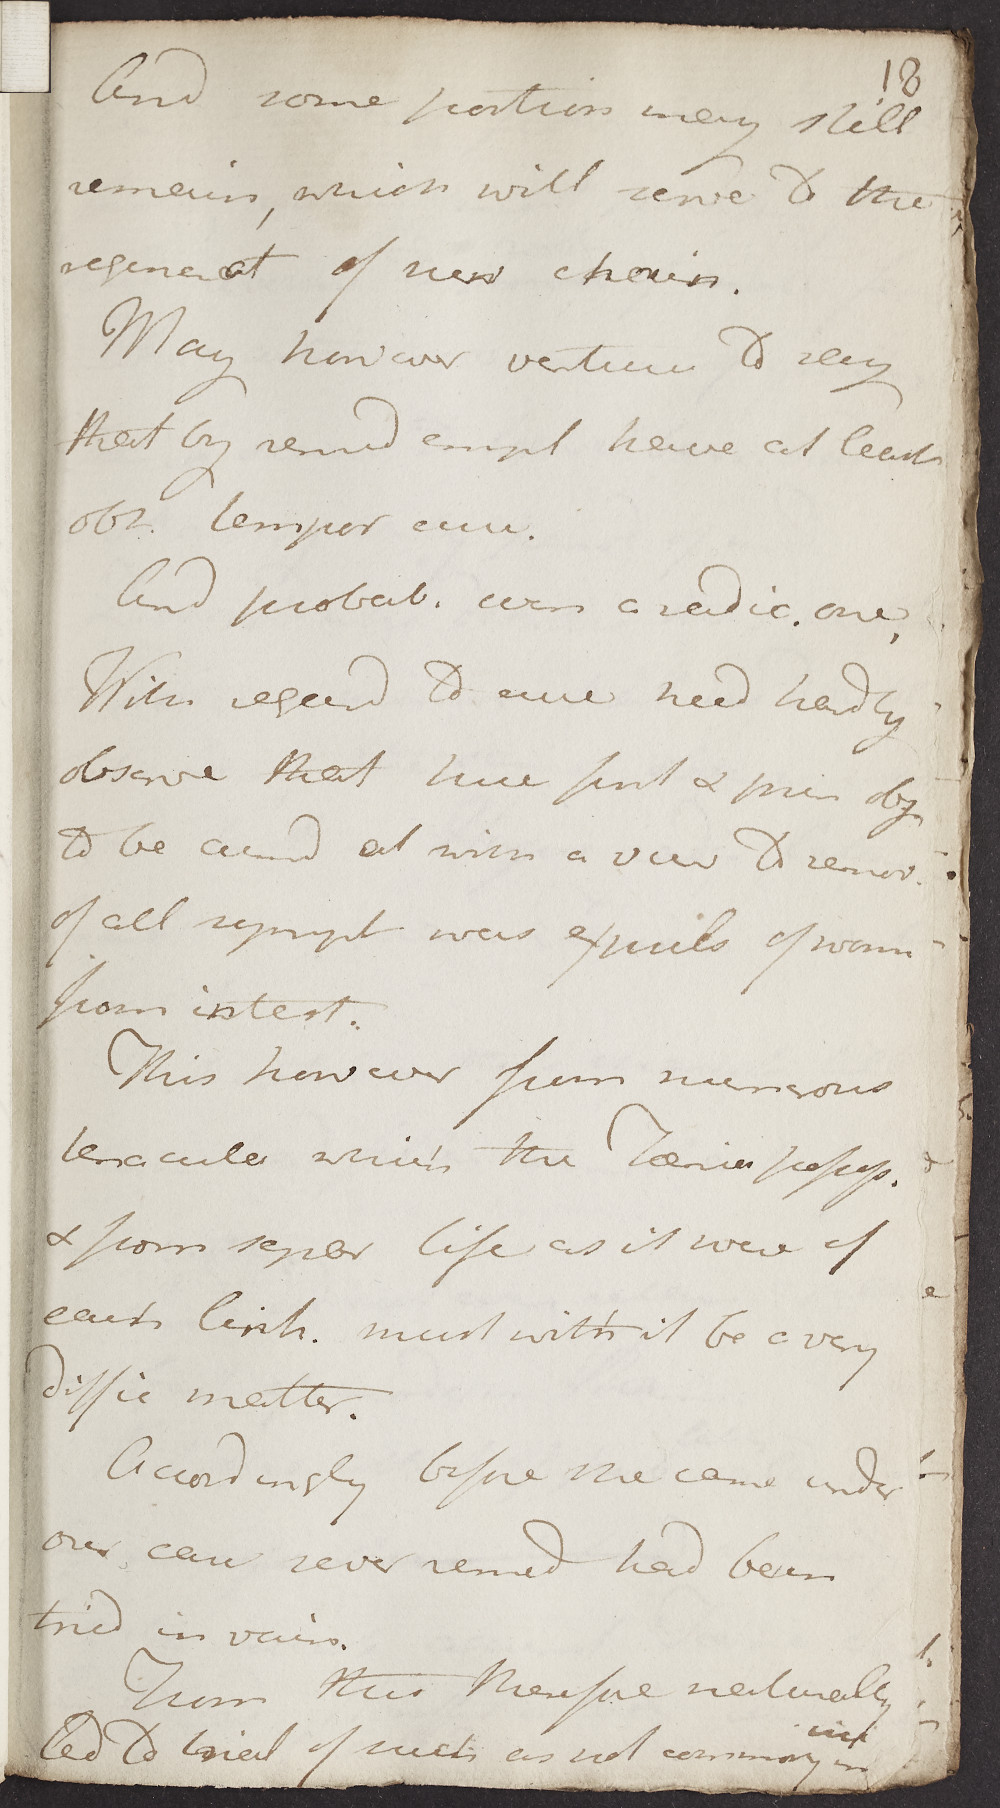 18
And some portion may still
remain, which will serve to the
regenerat of new chain.
May however ventuu to say
that by remed empl have at least
obt. tempor cuu.
And probab. even a radic. one,
With regard to cuu need hardly
observe that huu first & prin obj
to be aimd at with a view to remov.
of all sympt was expuls of worm
from intest.
This however from numerous
tenacula which the Tænia possess.
& from separ life as it were of
each link. must with it be a very
diffic matter.
Accordingly before she came under
our cau sever remed had been
tried in vain.
From this therefore naturally
led to trial of such as not commonly in